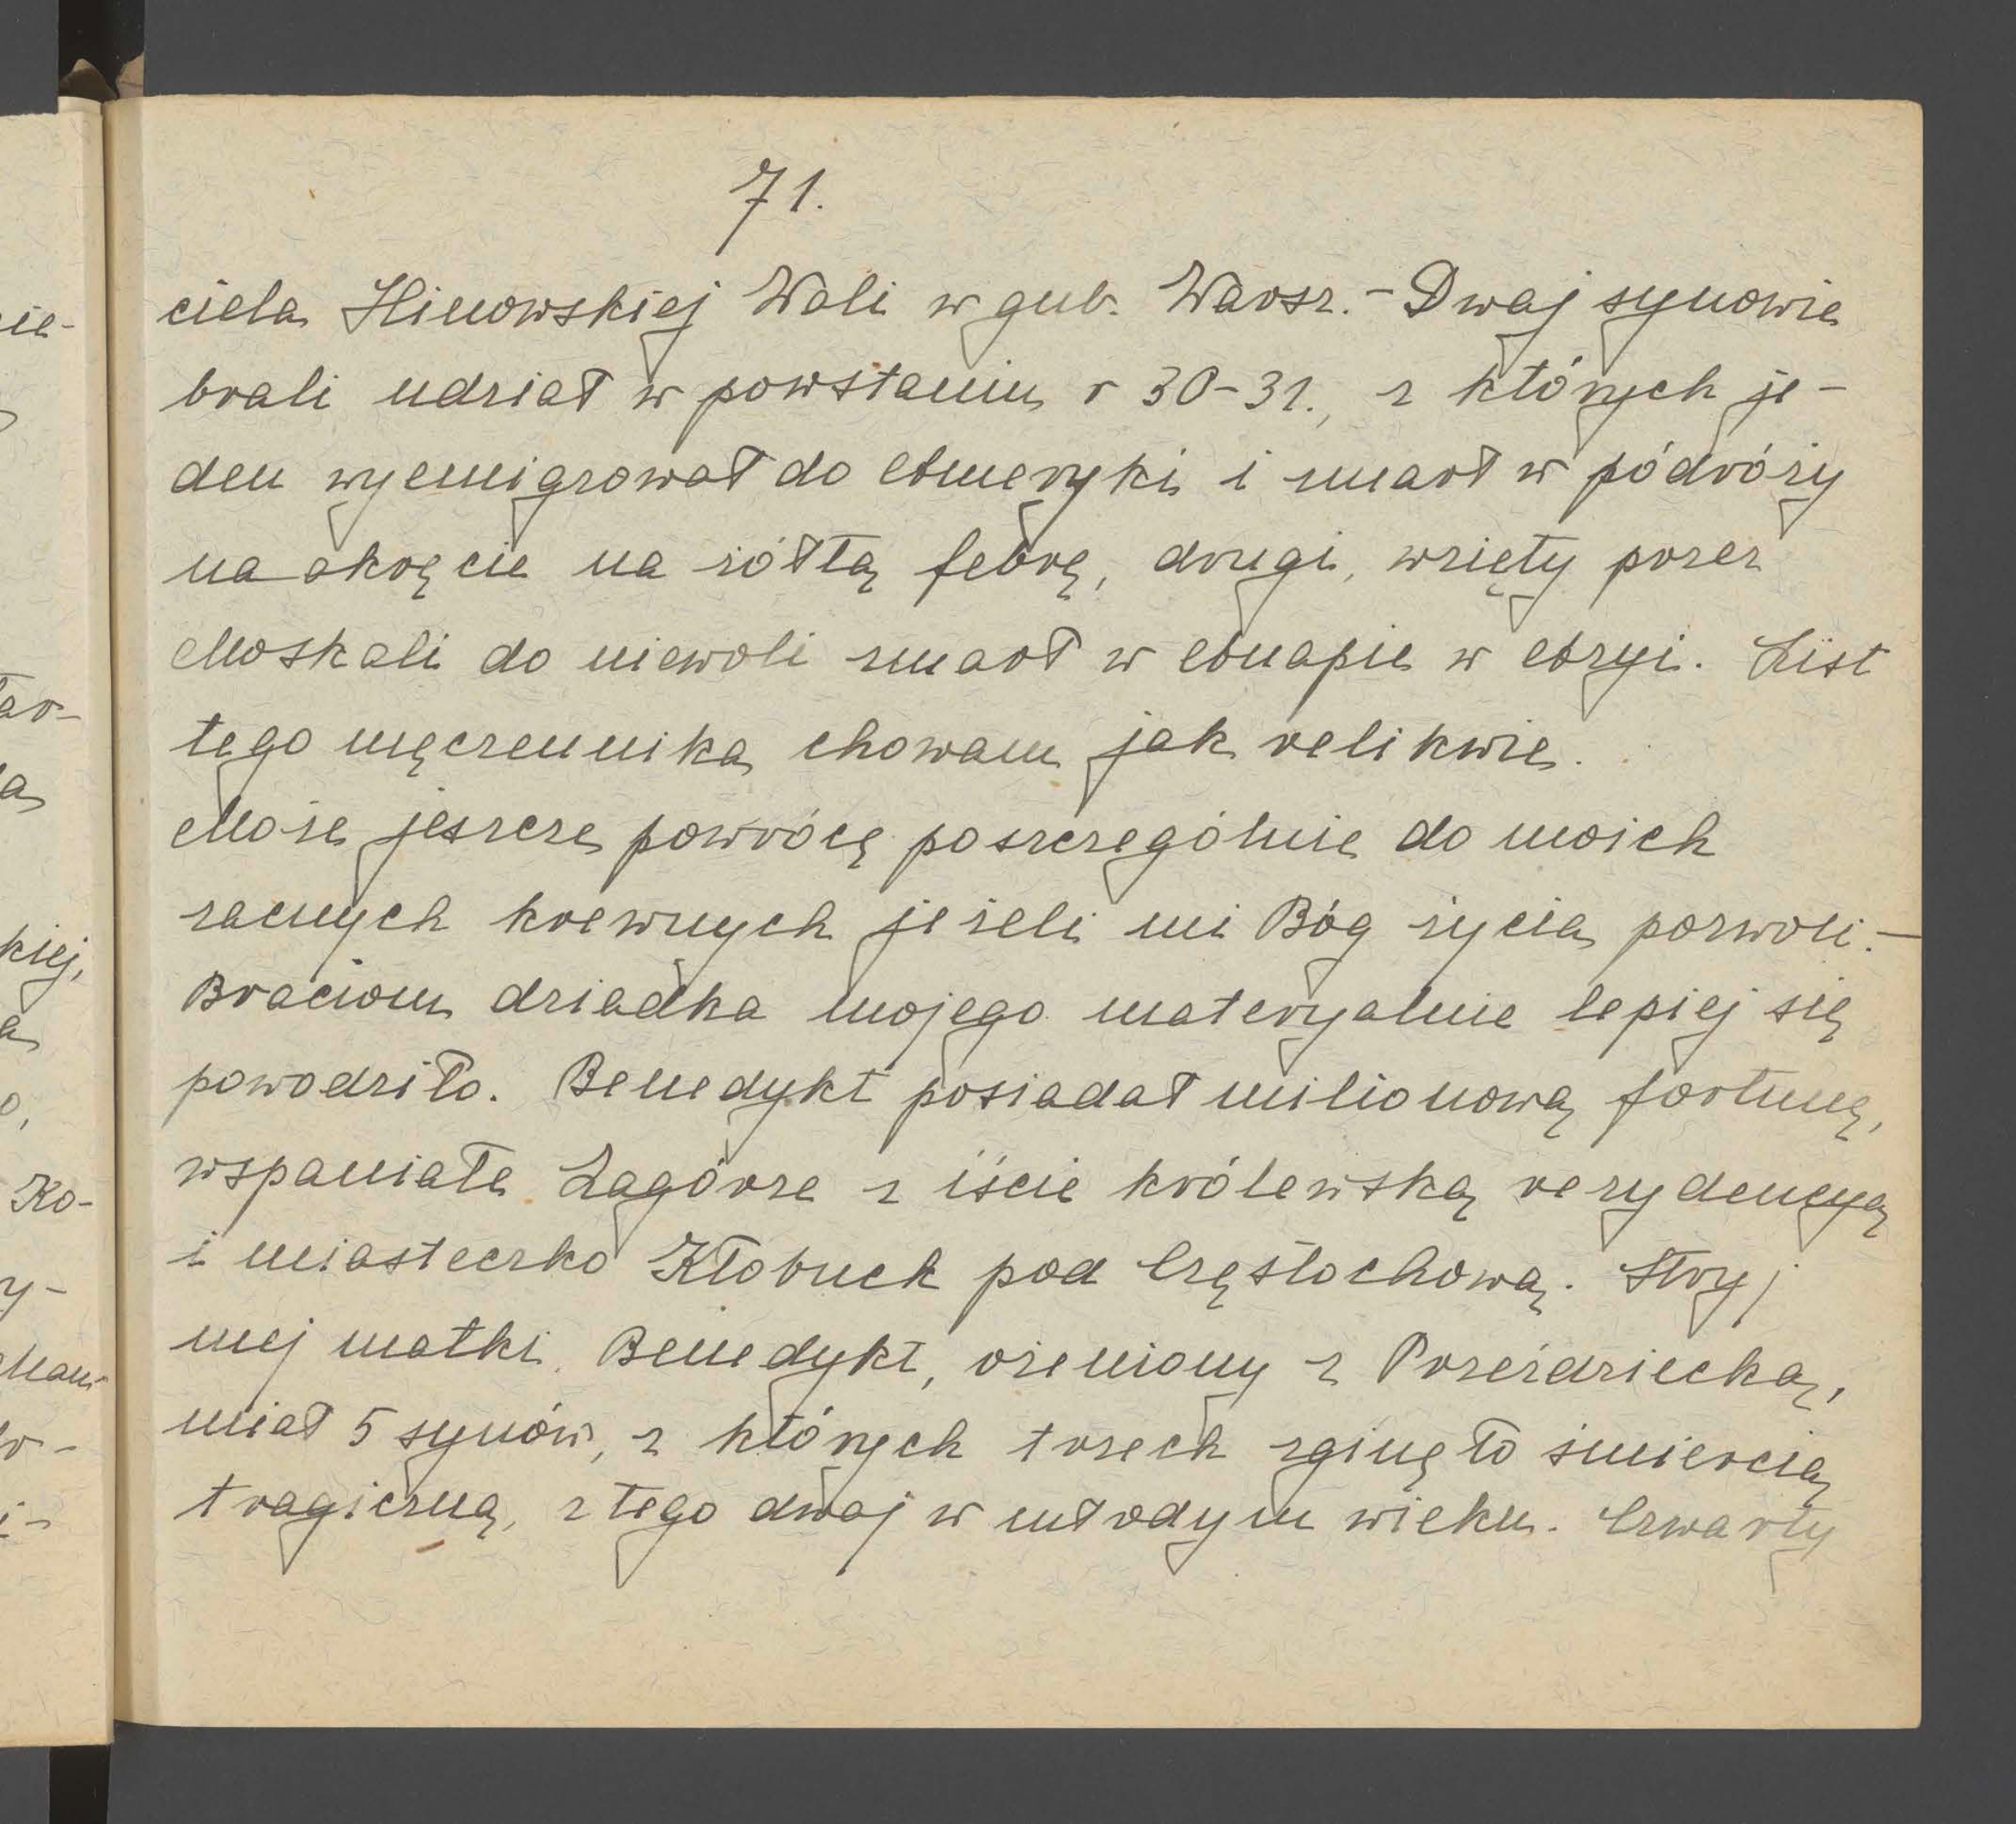 71.
ciela Hinowskiej Woli w gub. Warsz. - Dwaj synowie
brali udział w powstaniu r 30-31., z których je-
den wyemigrował do Ameryki i umarł w podróży
na okręcie na żółtą febrę, drugi, wzięty przez
Moskali do niewoli zmarł w Anapie w Azyi. List
tego męczennika chowam jak relikwie.
Może jeszcze powrócę poszczególnie do moich
zacnych krewnych jeżeli mi Bóg życia pozwoli. -
Braciom dziadka mojego materyalnie lepiej się
powodziło. Benedykt posiadał milionową fortunę,
wspaniałe Zagórze z iście królewską rezydencyą
i miasteczko Kłobuck pod Częstochową. Stryj
mej matki Benedykt, ożeniony z Przeździecką,
miał 5 synów, z których trzech zginęło śmiercią
tragiczną, z tego dwaj w młodym wieku. Czwarty
ie-
ar-
a
kiej,
a
o,
Ko-
y-
Mam
i-